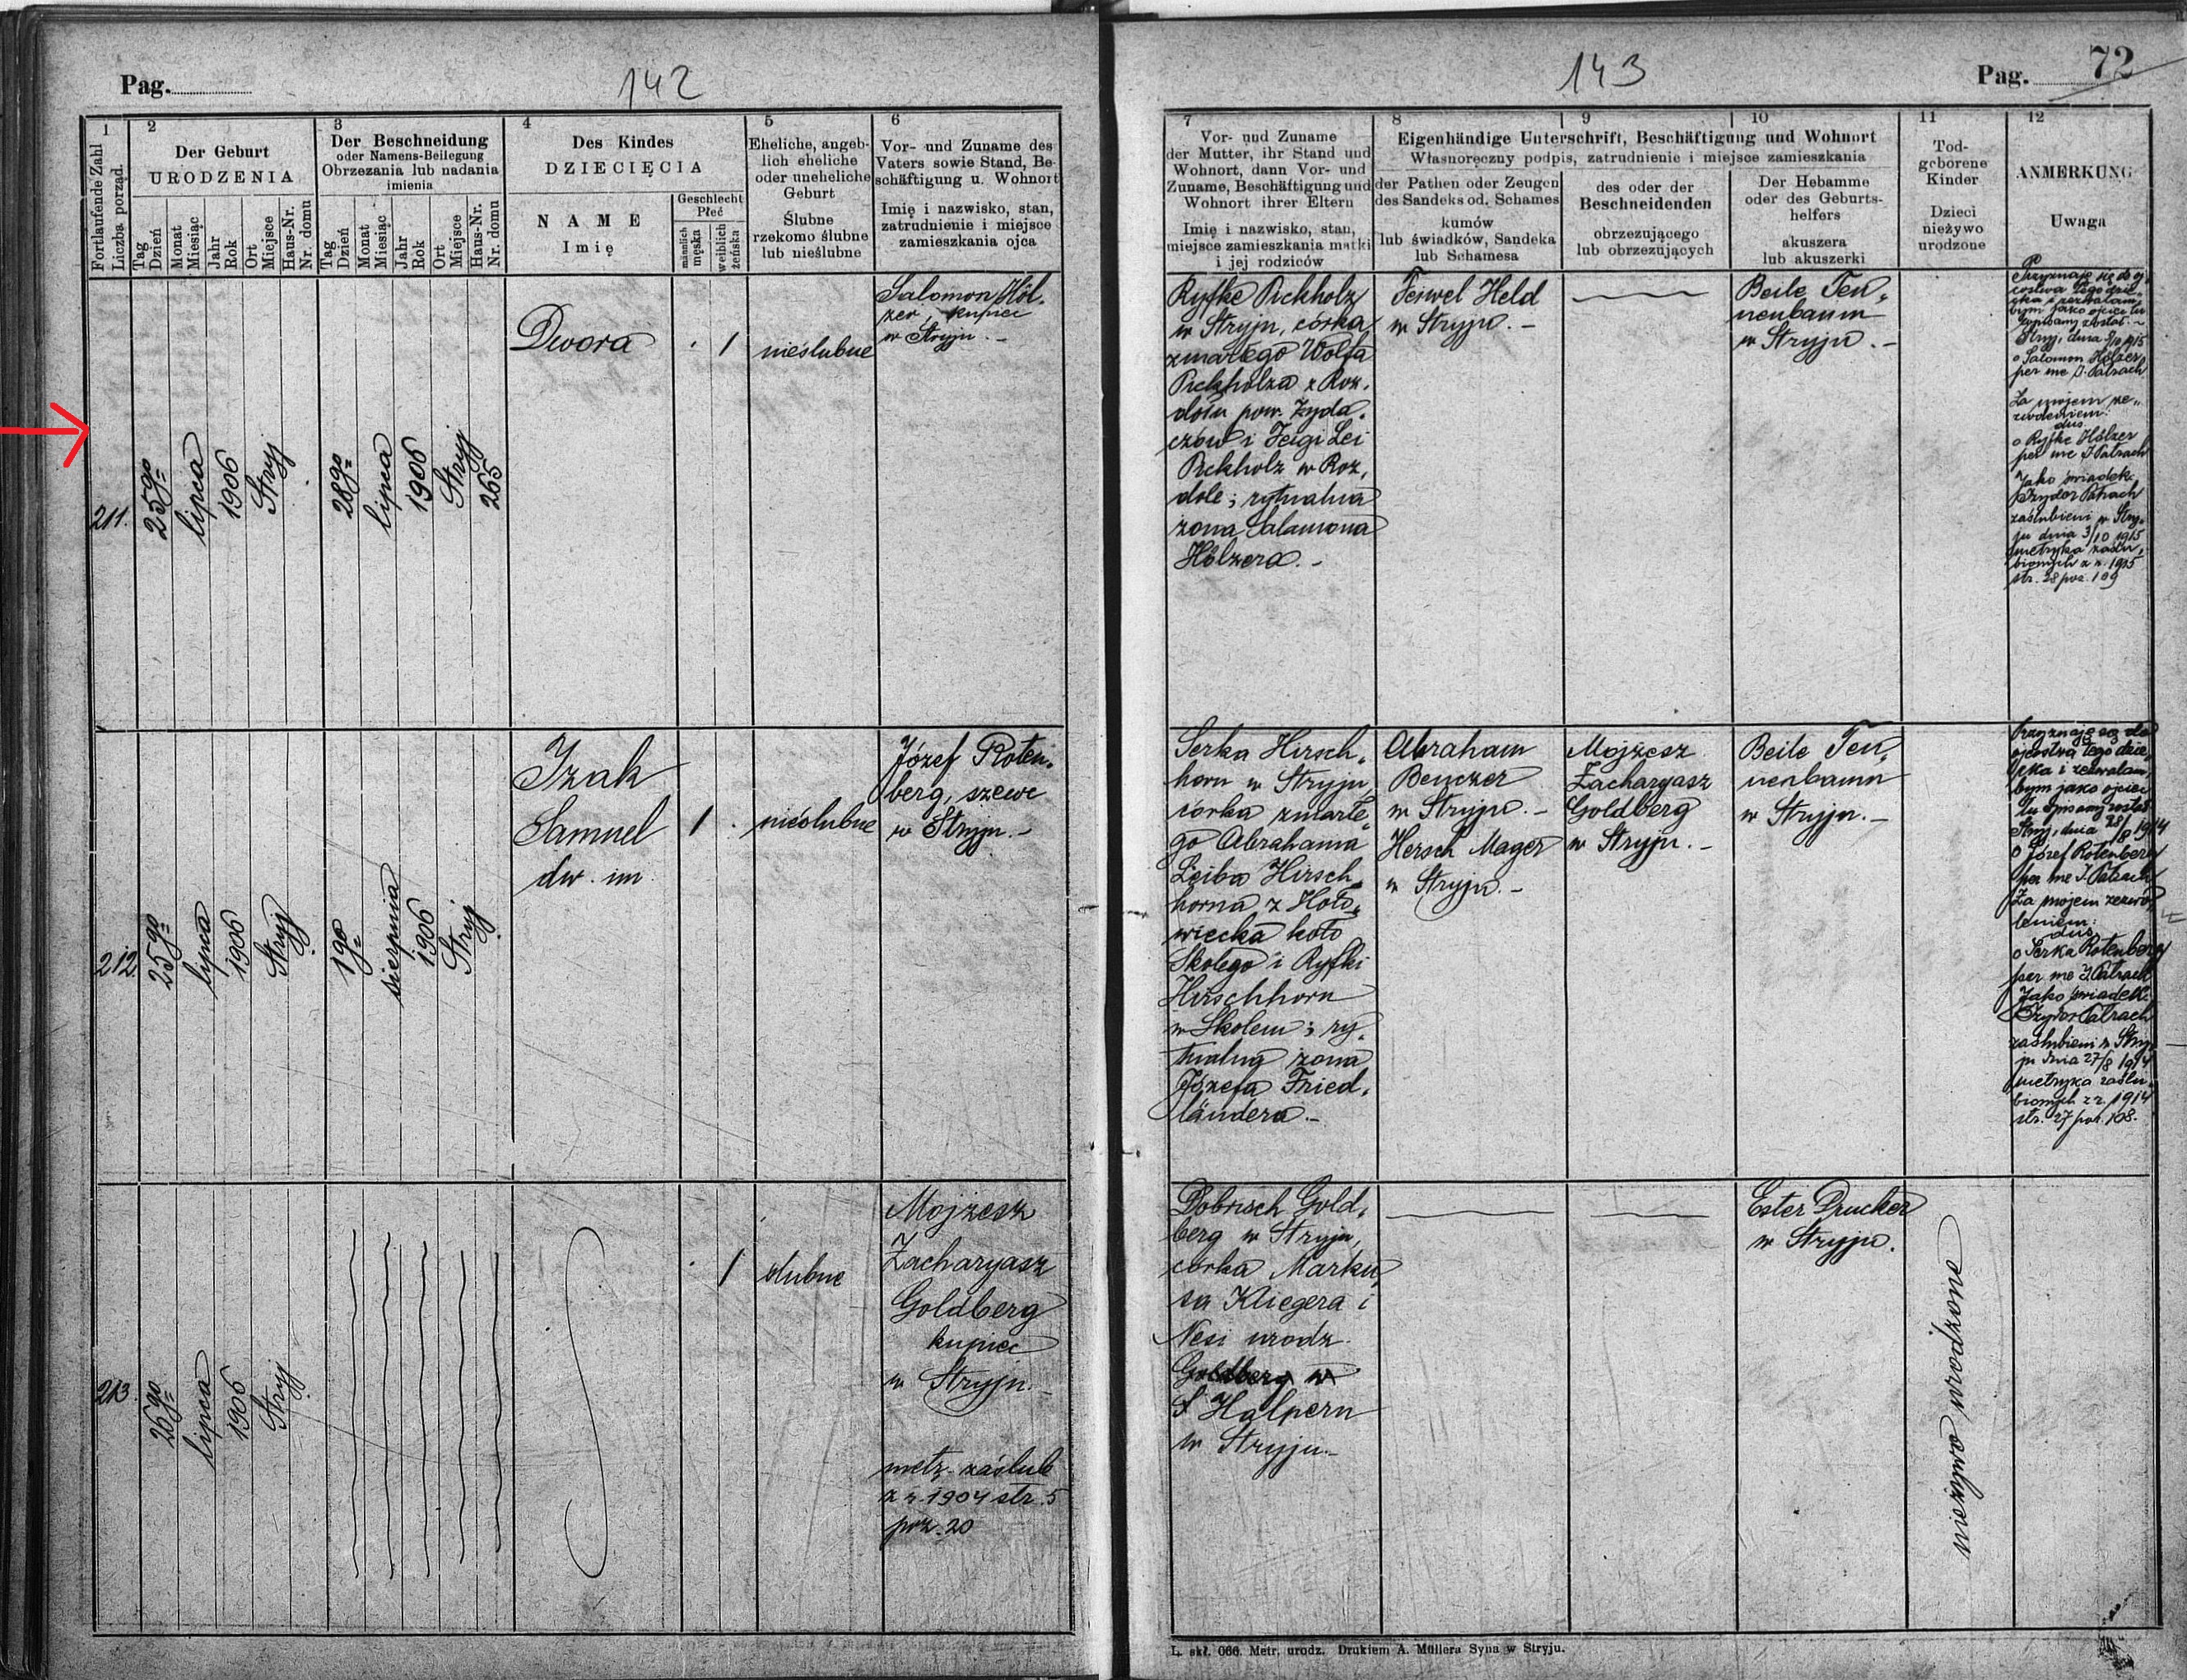 Pag.
142
1
Fortlaufende Zahl
Liczba porząd.
2
Der Geburt
URODZENIA
Tag
Dzień
Monat
Miesiąc
Jahr
Rok
Ort
Miejsce
Haus-Nr.
Nr. domu
3
Der Beschneidung
oder Namens-Beilegung
Obrzezania lub nadania
imienia
Tag
Dzień
Monat
Miesiąc
Jahr
Rok
Ort
Miejsce
Haus-Nr.
Nr. domu
4
Des Kindes
DZIECIĘCIA
NAME
Imię
Geschlecht
Płeć
männlich
męska
weiblich
żeńska
5
Eheliche, angeb-
lich eheliche
oder uneheliche
Geburt
Ślubne
rzekomo ślubne
lub nieślubne
6
Vor- und Zuname des
Vaters sowie Stand, Be-
schäftigung u. Wohnort
Imię i nazwisko, stan,
zatrudnienie i miejsce
zamieszkania ojca
211.
25go
lipca
1906
Stryj
28go
lipca
1906
Stryj
265
Dwora
. 1
nieślubne
Salomon Höl.
zer, kupiec
w Stryju. -
212.
25go
lipca
1906
Stryj
1go
sierpnia
1906
Stryj
Izak
Samuel
dw. im.
1 .
nieślubne
Józef Roten.
berg, szewc
w Stryju. -
213.
26go
lipca
1906
Stryj
. 1
ślubne
Mojżesz
Zacharyasz
Goldberg
kupiec
w Stryju. -
metr. zaślub
z r. 1904 str. 5
poz. 20
143
Pag. 72
7
Vor- und Zuname
der Mutter, ihr Stand und
Wohnort, dann Vor- und
Zuname, Beschäftigung und
Wohnort ihrer Eltern
Imię i nazwisko, stan,
miejsce zamieszkania matki
i jej rodziców
8
9
10
Eigenhändige Unterschrift, Beschäftigung und Wohnort
Własnoręczny podpis, zatrudnienie i miejsce zamieszkania
der Pathen oder Zeugen
des Sandeks od. Schames
kumów
lub świadków, Sandeka
lub Schamesa
des oder der
Beschneidenden
obrzezującego
lub obrzezujących
Der Hebamme
oder des Geburts-
helfers
akuszera
lub akuszerki
11
Tod-
geborene
Kinder
Dzieci
nieżywo
urodzone
12
ANMERKUNG
Uwaga
Ryfke Pickholz
w Stryju, córka
zmarłego Wolfa
Pickholza z Roz.
dołu pow. Żyda.
czów i Feigi Lei
Pickholz w Roz,
dole; rytualna
żona Salamona
Hölzera. -
Feiwel Held
w Stryju. -
Beile Ten.
nenbaum
w Stryju. -
Przyznaję się do oj.
costwa tego dzie.
cka i zezwalam,
bym jako ojciec tu
zapisany został. -
Stryj, dnia 3/10 1915
o Salomon Hölzer
per me J. Patrach
Za mojem ze„
zwoleniem:
dus
o Ryfke Hölzer
per me J. Patrach
Jako świadek
Izydor Patrach
zaślubieni w Stry.
ju dnia 3/10 1915
metryka zaślu,
bionych z r. 1915
str. 28 poz. 109
Serka Hirsch„
horn w Stryju,
córka zmarłe„
go Abrahama
Leiba Hirsch„
horna z Hoło„
wiecka koło
Skolego i Ryfki
Hirschhorn
w Skolem; ry.
tualna żona
Józefa Fried.
ländera. -
Abraham
Benczer
w Stryju. -
Hersch Mager
w Stryju. -
Mojżesz
Zacharyasz
Goldberg
w Stryju. -
Beile Ten„
nenbaum
w Stryju. -
Przyznaję się do
ojcostwa tego dzie,
cka i zezwalam,
bym jako ojciec
tu zapisany został
Stryj, dnia 28/8 1914
o Józef Rotenberg
per me J. Patrach
Za mojem zezwo„
leniem:
dus
o Serka Rotenberg
per me J. Patrach
Jako świadek
Izydor Patrach
zaślubieni w Stry.
ju dnia 27/8 1914
metryka zaślu.
bionych z r. 1914
str. 27 poz. 108.
Dobrisch Gold.
berg w Stryju,
córka Marku„
sa Kliegera i
Nesi urodz.
Goldberg w
S Halpern
w Stryju. -
Ester Drucker
w Stryju.
nieżywo urodzone
L. skł. 066. Metr. urodz. Drukiem A. Müllera Syna w Stryju.